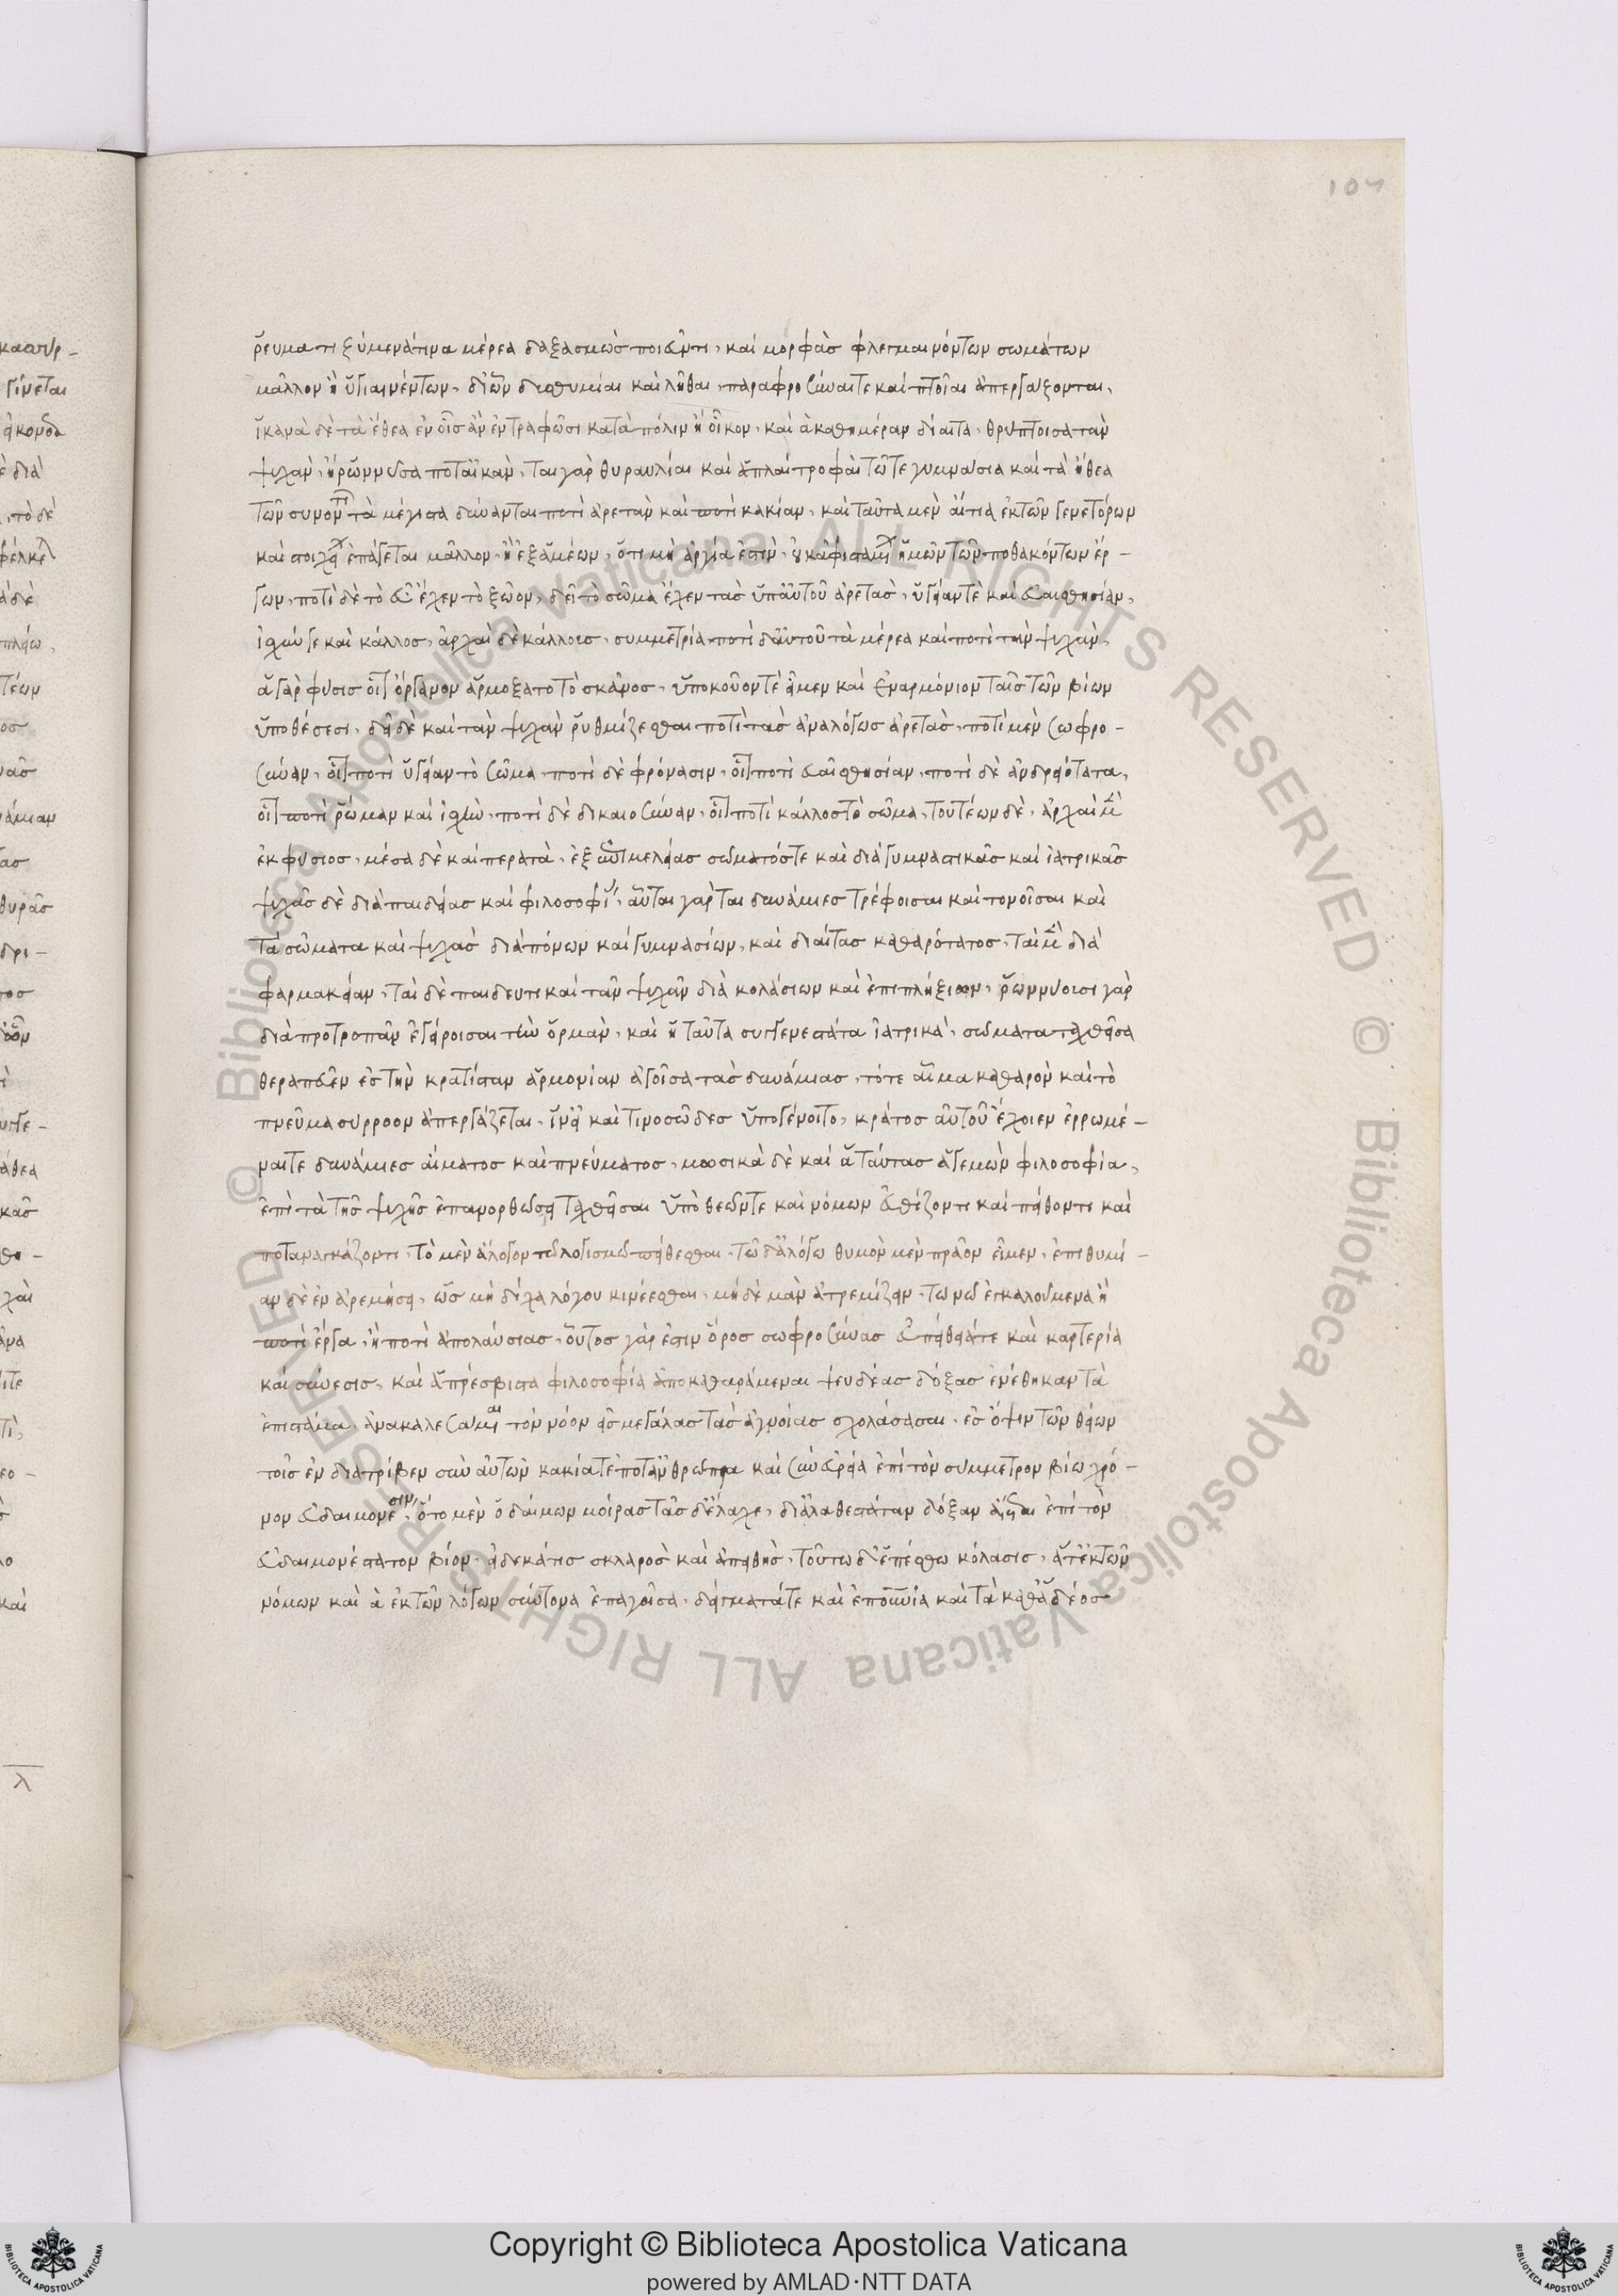 107
ῥεύματι ξύμενά τινα μέρεα δαξασμὼς ποιεῦντι, καὶ μορφὰς φλεγμαινόντων σωμάτων
μᾶλλον ἢ ὑγιαινέντων, δι ὧν δυσθυμίαι καὶ λῆθαι, παραφροσύναι τε καὶ πτοῖαι ἀπεργάζονται,
ἱκανὰ δὲ τὰ ἔθεα ἐν οἷς ἂν ἐντραφῶσι κατὰ πόλιν ἢ οἶκον, καὶ ἁ καθημέραν δίαιτα, θρύπτοισα τὰν
ψυχὰν, ἢ ῥωννῦσα ποτ ἀλκάν, ται γὰρ θυραυλίαι καὶ ἁπλαῖ τροφαὶ τῶ τε γυμνάσια καὶ τὰ ἤθεα
τῶν συνόντων τὰ μέγιστα δύνανται ποτὶ ἀρετὰν καὶ ποτὶ κακίαν, καὶ ταῦτα μὲν αἴτια ἐκ τῶν γενετόρων
καὶ στοιχείων ἐπάγεται μᾶλλον, ἢ ἐξ ἁμέων, ὅτι μὴ ἀργία ἐστὶν, ἀφισταμένων ἡμῶν τῶν ποθακόντων ἔρ-
γων, ποτὶ δὲ τὸ εὖ ἔχεν τὸ ζῷον, δεῖ τὸ σῶμα ἔχεν τὰς ὑπ αὐτοῦ ἀρετάς, ὑγείαν τὲ καὶ εὐαισθησίαν,
ἰσχύν γε καὶ κάλλος, ἀρχαὶ δὲ κάλλους, συμμετρία ποτὶ δ αὐτοῦ τὰ μέρεα καὶ ποτὶ τὴν ψυχὰν,
ἁ γὰρ φύσις οἷον ὄργανον ἁρμόξατο τὸ σκᾶνος, ὑποκοῦόν τὲ εἶμεν καὶ ἐναρμόνιον ταῖς τῶν βίων
ὑποθέσεσι, δεῖ δὲ καὶ τὰν ψυχὰν ῥυθμίζεσθαι ποτὶ τὰς ἀναλόγως ἀρετὰς, ποτὶ μὲν σωφρο-
σύναν, οἷον ποτὶ ὑγείαν τὸ σῶμα, ποτὶ δὲ φρόνασιν, οἷον ποτὶ εὐαισθησίαν, ποτὶ δὲ ἀνδρειότατα,
οἷον ποτὶ ῥώμαν καὶ ἰσχὺν, ποτὶ δὲ δικαιοσύναν, οἷον ποτὶ κάλλος τὸ σῶμα, τουτέων δὲ, ἀρχαὶ μὲν
ἐκ φύσιος, μέσα δὲ καὶ πέρατα, ἐξ ἐπιμελείας σώματός τε καὶ διὰ γυμναστικᾶς καὶ ἰατρικᾶς
ψυχᾶς δὲ διὰ παιδείας καὶ φιλοσοφίας, αὗται γὰρ ται δυνάμιες τρέφοισαι καὶ τονοῖσαι καὶ
τὰ σώματα καὶ ψυχὰς διὰ πόνων καὶ γυμνασίων, καὶ διαίτας καθαρότατος, ταὶ μὲν διὰ
φαρμακείαν, ταὶ δὲ παιδευτικαὶ τᾶν ψυχᾶν διὰ κολάσιων καὶ ἐπιπλήξιων, ῥωννύοισι γὰρ
διὰ προτροπᾶν ἐγείροισαι τὰν ὁρμὰν, καὶ ἡ ταῦτα συγγενεστάτα ἰατρικὰ, σώματα ταχθεῖσα
θεραπεύεν ἐς τὴν κρατίσταν ἁρμονίαν ἄγοισα τὰς δυνάμιας, τότε αἷμα καθαρὸν καὶ τὸ
πνεῦμα σύρροον ἀπεργάζεται, ἵν εἰ καὶ τι νοσῶδες ὑπογένοιτο, κράτος αὐτοῦ ἔχοιεν ἐρρωμέ-
ναι τε δυνάμιες αἵματος καὶ πνεύματος, μωσικὰ δὲ καὶ ἁ ταύτας ἁγεμὼν φιλοσοφία,
ἐπὶ τᾷ τῆς ψυχῆς ἐπανορθώσει ταχθεῖσαι ὑπὸ θεῶν τε καὶ νόμων ἐθίζοντι καὶ πείθοντι καὶ
ποταναγκάζοντι, τὸ μὲν ἄλογον τῷ λογισμῷ πείθεσθαι, τῶ δ ἀλόγω θυμὸν μὲν πρᾶον εἶμεν, ἐπιθυμί-
αν δὲ ἐν ἀρεμήσει, ὡς μὴ δίχα λόγου κινέεσθαι, μὴ δὲ μὰν ἀτρεμίζειν, τω νῶ ἐγκαλούμενα ἢ
ποτὶ ἔργα, ἢ ποτὶ ἀπολαύσιας, οὗτος γὰρ ἐστιν ὅρος σωφροσύνας εὐπείθειά τε καὶ καρτερία
καὶ σύνεσις, καὶ ἁ πρέσβιστα φιλοσοφία ἀποκαθαράμεναι ψευδέας δόξας ἐνέθηκαν τὰ
ἐπιστάμα, ἀνακαλεσάμεναι τὸν νόον ἐς μεγάλας τᾶς ἀγνοίας σχολάσασαι, ἐς ὄψιν τῶν θείων
τοῖς ἐν διατρίβεν σὺν αὐτῶν κακία τὲ ποτ ἀνθρώπεια καὶ σὺν εὐροία ἐπὶ τὸν σύμμετρον βίω χρό-
νον εὐδαιμονεσιν, ὅτο μὲν ὁ δαίμων μοίρας τᾶς δ ἔλαχε, δι ἀλαθεστάταν δόξαν ἄγεται ἐπὶ τὸν
εὐδαιμονέστατον βίον, εἰ δὲ κά τις σκλαρὸς καὶ ἀπειθὴς, τούτω δ ἑπέσθω κόλασις, ἅ τ ἐκ τῶν
νόμων καὶ ἁ ἐκ τῶν λόγων σύντονα ἐπάγοισα, δείματά τε καὶ ἐπουράνια καὶ τὰ καθ ἅδεος